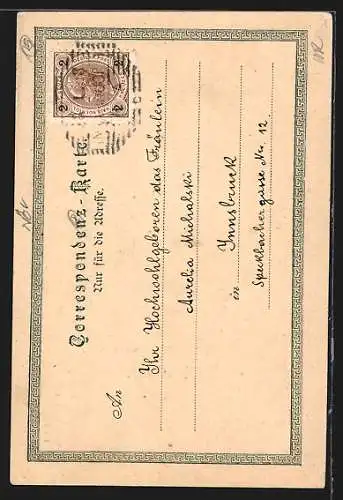 Correspondenz-Karte.
Nur für die Adresse.
2 2
2 2
An
Ihr Hochwohlgeboren das Fräulein
Aurelia Michalski
in
Innsbruck
Speckbacher gasse Nr. 12.